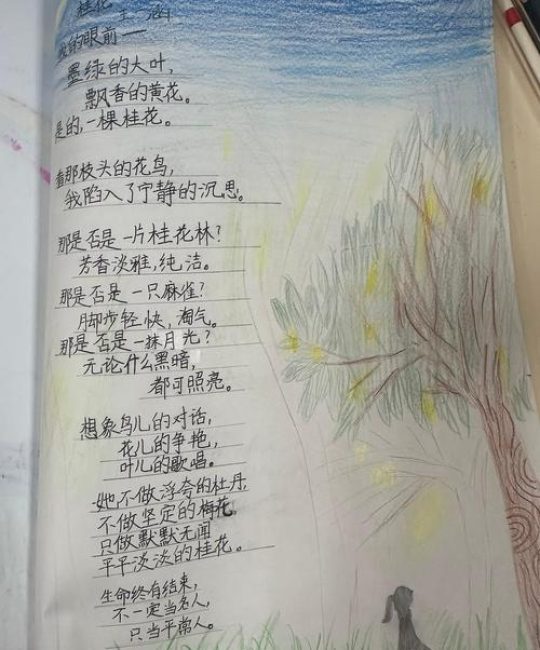 桂花
王涵
的眼前——
墨绿的大叶，
飘香的黄花。
是的，一棵桂花。
看那枝头的花鸟，
我陷入了宁静的沉思。
那是否是一片桂花林？
芳香淡雅，纯洁。
那是否是一只麻雀？
脚步轻快，淘气。
那是否是一抹月光？
无论什么黑暗，
都可照亮。
想象鸟儿的对话，
花儿的争艳，
叶儿的歌唱。
她不做浮夸的牡丹，
不做坚定的梅花，
只做默默无闻
平平淡淡的桂花。
生命终有结束，
不一定当名人，
只当平常人。